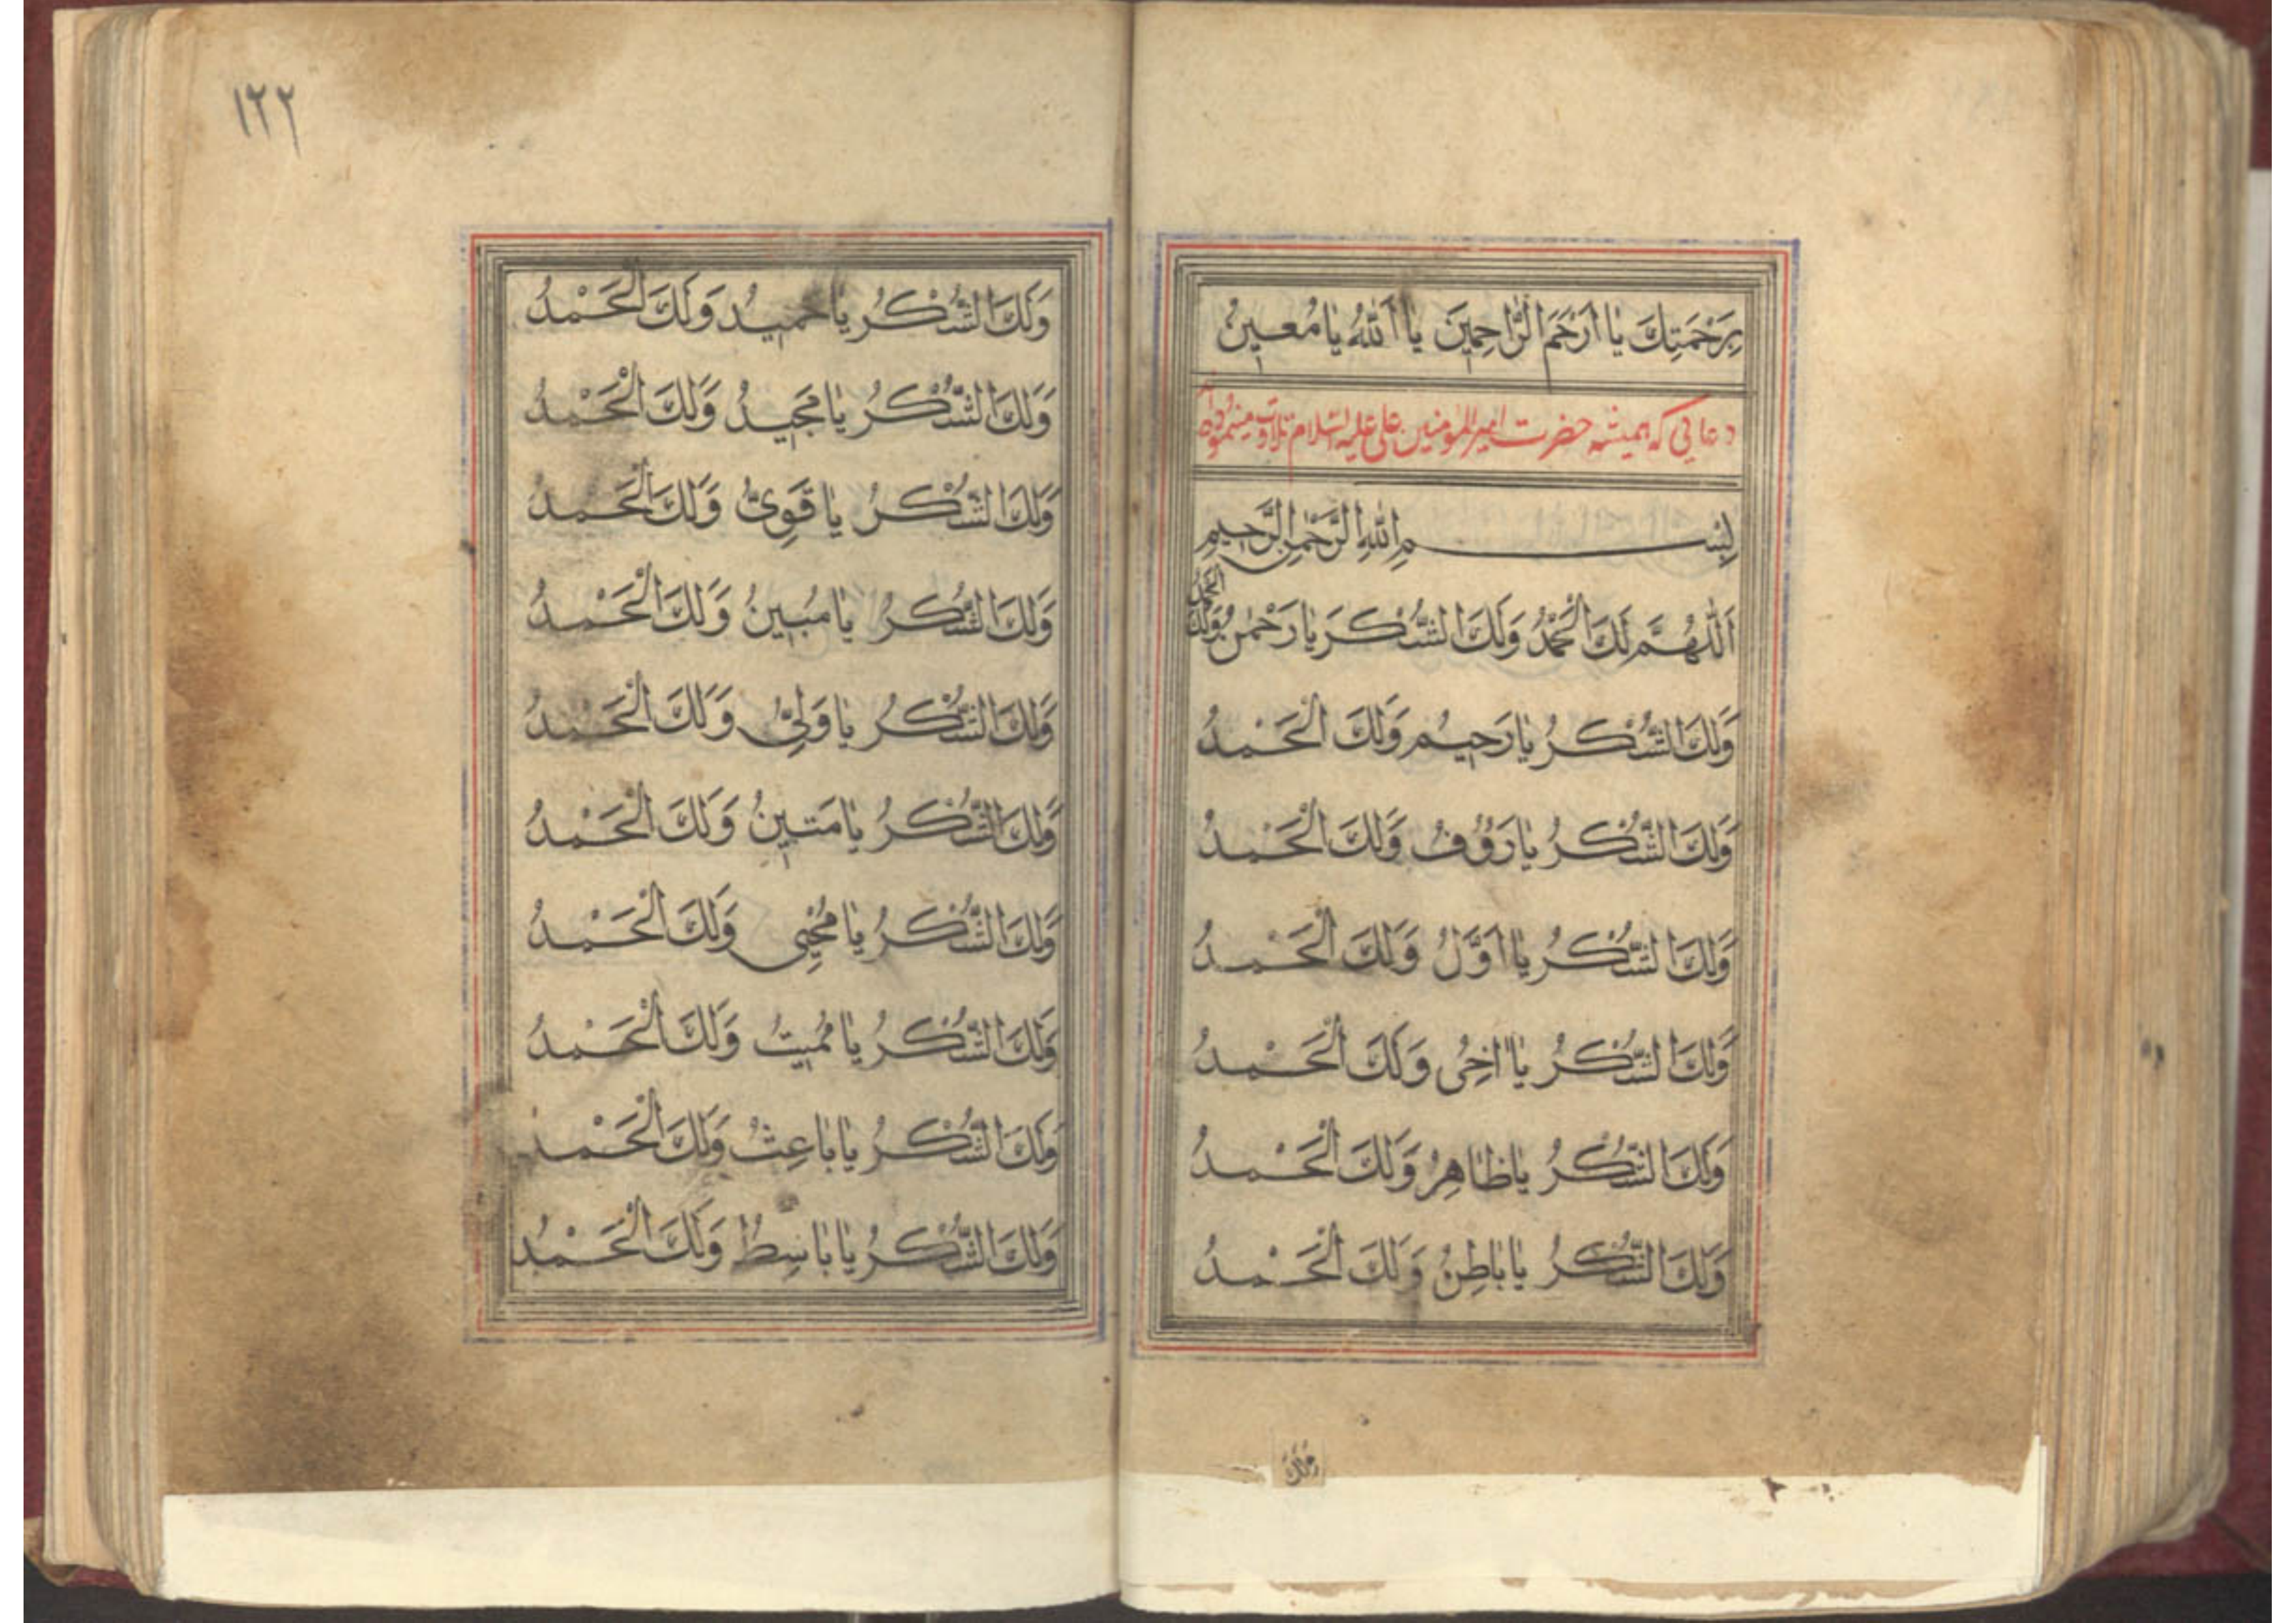 بِرَحْمَتِكَ يَا اَرْحَمَ الرَّاحِمِينَ يَا اَللّٰهُ يَا مُعِينُ
دعائی که همیشه حضرت امیر المؤمنین علی علیه السلام تلاوت مینموده
بِسْمِ اللّٰهِ الرَّحْمٰنِ الرَّحِيمِ
اَللّٰهُمَّ لَكَ الْحَمْدُ وَلَكَ الشُّكْرَ يَا رَحْمٰنُ وَلَكَ الْحَمْدُ
وَلَكَ الشُّكْرُ يَا رَحِيمُ وَلَكَ الْحَمْدُ
وَلَكَ الشُّكْرُ يَا رَؤُفُ وَلَكَ الْحَمْدُ
وَلَكَ الشُّكْرُ يَا اَوَّلُ وَلَكَ الْحَمْدُ
وَلَكَ الشُّكْرُ يَا اخِرُ وَلَكَ الْحَمْدُ
وَلَكَ الشُّكْرُ يَا ظَاهِرُ وَلَكَ الْحَمْدُ
وَلَكَ الشُّكْرُ يَا بَاطِنُ وَلَكَ الْحَمْدُ
وَلَكَ
١٢٢
وَلَكَ الشُّكْرُ يَا حَمِيدُ وَلَكَ الْحَمْدُ
وَلَكَ الشُّكْرُ يَا مَجِيدُ وَلَكَ الْحَمْدُ
وَلَكَ الشُّكْرُ يَا قَوِىُّ وَلَكَ الْحَمْدُ
وَلَكَ الشُّكْرُ يَا مُبِينُ وَلَكَ الْحَمْدُ
وَلَكَ الشُّكْرُ يَا وَلِىُّ وَلَكَ الْحَمْدُ
وَلَكَ الشُّكْرُ يَا مَتِينُ وَلَكَ الْحَمْدُ
وَلَكَ الشُّكْرُ يَا مُحْيِى وَلَكَ الْحَمْدُ
وَلَكَ الشُّكْرُ يَا مُمِيتُ وَلَكَ الْحَمْدُ
وَلَكَ الشُّكْرُ يَا بَاعِثُ وَلَكَ الْحَمْدُ
وَلَكَ الشُّكْرُ يَا بَاسِطُ وَلَكَ الْحَمْدُ